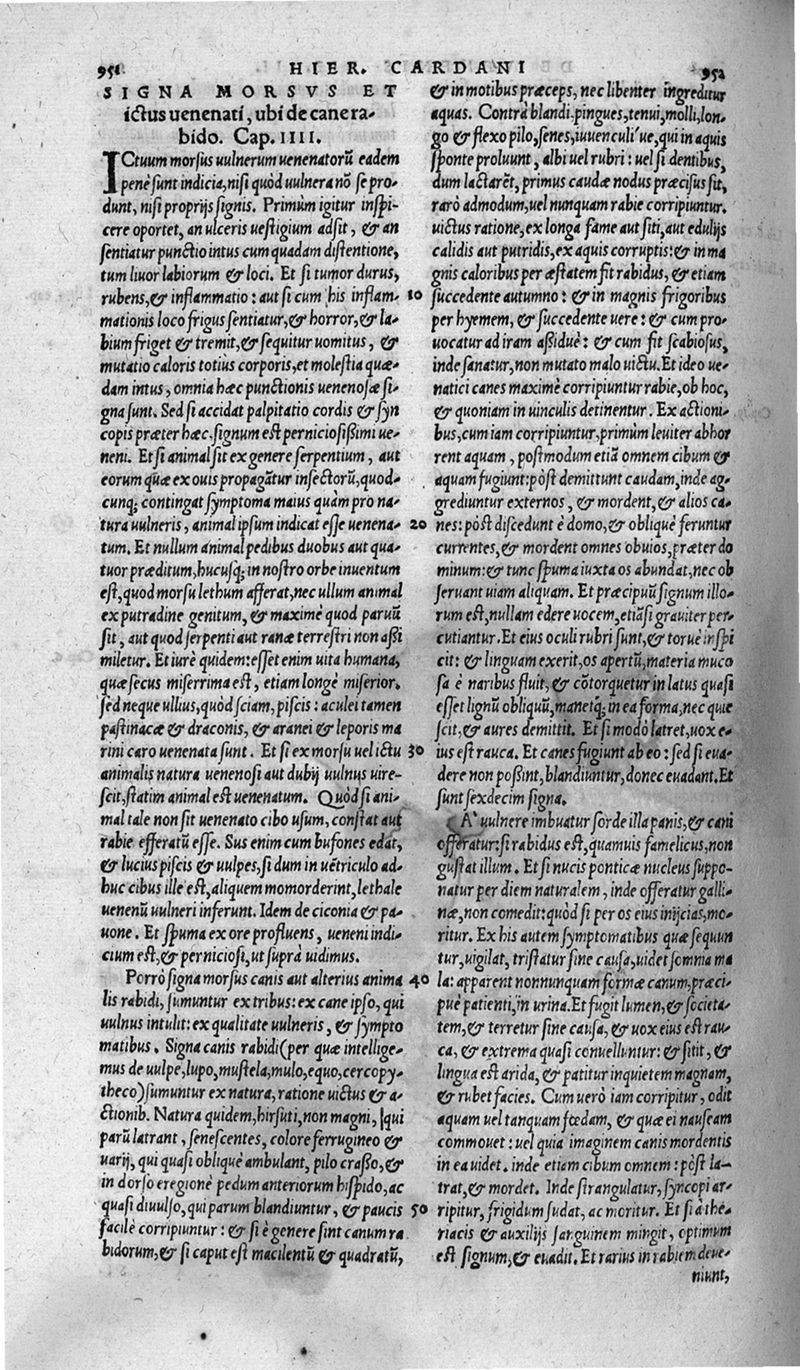 951 HIER. CARDANI 952
SIGNA MORSVS ET
ictus uenenati, ubi de cane ra-
bido. Cap. IIII.
ICtuum morsus uulnerum uenenatorũ eadem
penè sunt indicia, nisi quòd uulnera nõ se pro-
dunt, nisi proprijs signis. Primùm igitur inspi-
cere oportet, an ulceris uestigium adsit, & an
sentiatur punctio intus cum quadam distentione,
tum liuor labiorum & loci. Et si tumor durus,
rubens, & inflammatio: aut si cum his inflam-
mationis loco frigus sentiatur, & horror, & la-
bium friget & tremit, & sequitur uomitus, &
mutatio caloris totius corporis, et molestia quæ-
dam intus, omnia hæc punctionis uenenosæ si-
gna sunt. Sed si accidat palpitatio cordis & syn
copis præter hæc, signum est perniciosißimi ue-
neni. Et si animal sit ex genere serpentium, aut
eorum quæ ex ouis propagãtur insectorũ, quod-
cunq; contingat symptoma maius quàm pro na-
tura uulneris, animal ipsum indicat esse uenena-
tum. Et nullum animal pedibus duobus aut qua-
tuor præditum, hucusq; in nostro orbe inuentum
est, quod morsu lethum afferat, nec ullum animal
ex putradine genitum, & maximè quod paruũ
sit, aut quod serpenti aut ranæ terrestri non aßi
miletur. Et iurè quidem: esset enim uita humana,
quæ secus miserrima est, etiam longè miserior.
sed neque ullius, quòd sciam, piscis: aculei tamen
pastinacæ & draconis, & aranei & leporis ma
rini caro uenenata sunt. Et si ex morsu uel ictu
animalis natura uenenosi aut dubij uulnus uire-
scit, statim animal est uenenatum. Quòd si ani-
mal tale non sit uenenato cibo usum, constat aut
rabie efferatũ esse. Sus enim cum bufones edat,
& lucius piscis & uulpes, si dum in uẽtriculo ad-
huc cibus ille est, aliquem momorderint, lethale
uenenũ uulneri inferunt. Idem de ciconia & pa-
uone. Et spuma ex ore profluens, ueneni indi-
cium est, & perniciosi, ut suprà uidimus.
Porrò signa morsus canis aut alterius anima
lis rabidi, sumuntur ex tribus: ex cane ipso, qui
uulnus intulit: ex qualitate uulneris, & sympto
matibus. Signa canis rabidi (per quæ intellige-
mus de uulpe, lupo, mustela, mulo, equo, cercopy-
theco) sumuntur ex natura, ratione uictus & a-
ctionib. Natura quidem, hirsuti, non magni, qui
parũ latrant, senescentes, colore ferrugineo &
uarij, qui quasi obliquè ambulant, pilo craßo, &
in dorso eregione pedum anteriorum hispido, ac
quasi diuulso, qui parum blandiuntur, & paucis
facilè corripiuntur: & si è genere sint canum ra
bidorum, & si caput est macilentũ & quadratũ,
& in motibus præceps, nec libenter ingreditur
aquas. Contrà blandi, pingues, tenui, molli, lon-
go & flexo pilo, senes, iuuenculi'ue, qui in aquis
sponte proluunt, albi uel rubri: uel si dentibus,
dum lactarẽt, primus caudæ nodus præcisus sit,
rarò admodum, uel nunquam rabie corripiuntur.
uictus ratione, ex longa fame aut siti, aut edulijs
calidis aut putridis, ex aquis corruptis: & in ma
gnis caloribus per æstatem fit rabidus, & etiam
10 succedente autumno: & in magnis frigoribus
per hyemem, & succedente uere: & cum pro-
uocatur ad iram aßiduè: & cum fit scabiosus,
inde sanatur, non mutato malo uictu. Et ideo ue-
natici canes maximè corripiuntur rabie, ob hoc,
& quoniam in uinculis detinentur. Ex actioni-
bus, cum iam corripiuntur, primùm leuiter abhor
rent aquam, postmodum etiã omnem cibum &
aquam fugiunt: pòst demittunt caudam, inde ag-
grediuntur externos, & mordent, & alios ca-
20 nes: pòst discedunt è domo, & obliquè feruntur
currentes, & mordent omnes obuios, præter do
minum: & tunc spuma iuxta os abundat, nec ob
seruant uiam aliquam. Et præcipuũ signum illo-
rum est, nullam edere uocem, etiãsi grauiter per-
cutiantur. Et eius oculi rubri sunt, & toruè inspi
cit: & linguam exerit, os apertũ, materia muco
sa è naribus fluit, & cõtorquetur in latus quasi
esset lignũ obliquũ, manetq; in ea forma, nec quie
scit, & aures demittit. Et si modò latret, uox e-
30 ius est rauca. Et canes fugiunt ab eo: sed si eua-
dere non poßint, blandiuntur, donec euadant. Et
sunt sexdecim signa.
A' uulnere imbuatur sorde illa panis, & cani
offeratur: si rabidus est, quamuis famelicus, non
gustat illum. Et si nucis ponticæ nucleus suppo-
natur per diem naturalem, inde offeratur galli-
næ, non comedit: quòd si per os eius inijcias, mo-
ritur. Ex his autem symptomatibus quæ sequun
tur, uigilat, tristatur sine causa, uidet somnia ma
40 la: apparent nonnunquam formæ canum, præci-
puè patienti, in urina. Et fugit lumen, & societa-
tem, & terretur sine causa, & uox eius est rau-
ca, & extrema quasi conuelluntur: & sitit, &
lingua est arida, & patitur inquietem magnam,
& rubet facies. Cum uerò iam corripitur, odit
aquam uel tanquam fœdam, & quæ ei nauseam
commouet: uel quia imaginem canis mordentis
in ea uidet. inde etiam cibum omnem: pòst la-
trat, & mordet. Inde strangulatur, syncopi ar-
50 ripitur, frigidum sudat, ac moritur. Et si à the-
riacis & auxilijs sanguinem mingit, optimum
est signum, & euadit. Et rarius in rabiem deue-
niunt,